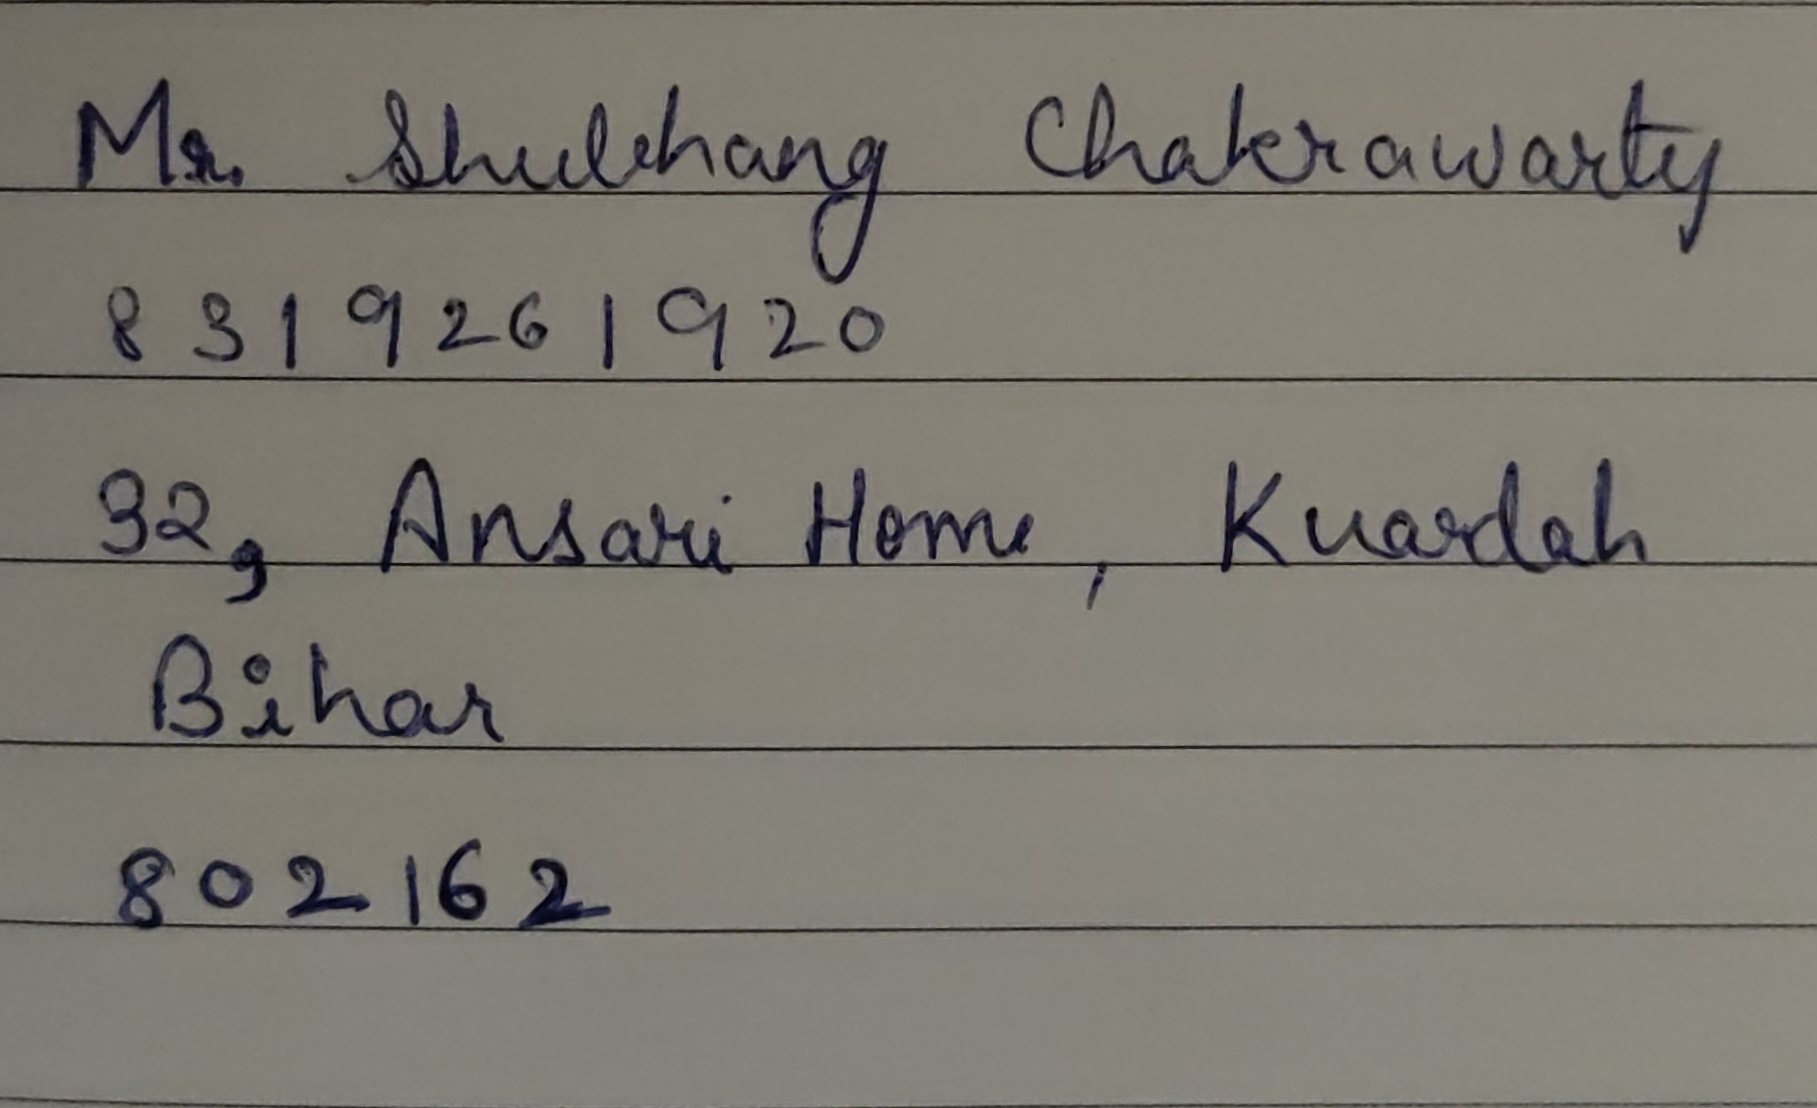 Mr. Shubhang Chakrawarty
8319261920
32, Ansari Home, Kuardah
Bihar
802162